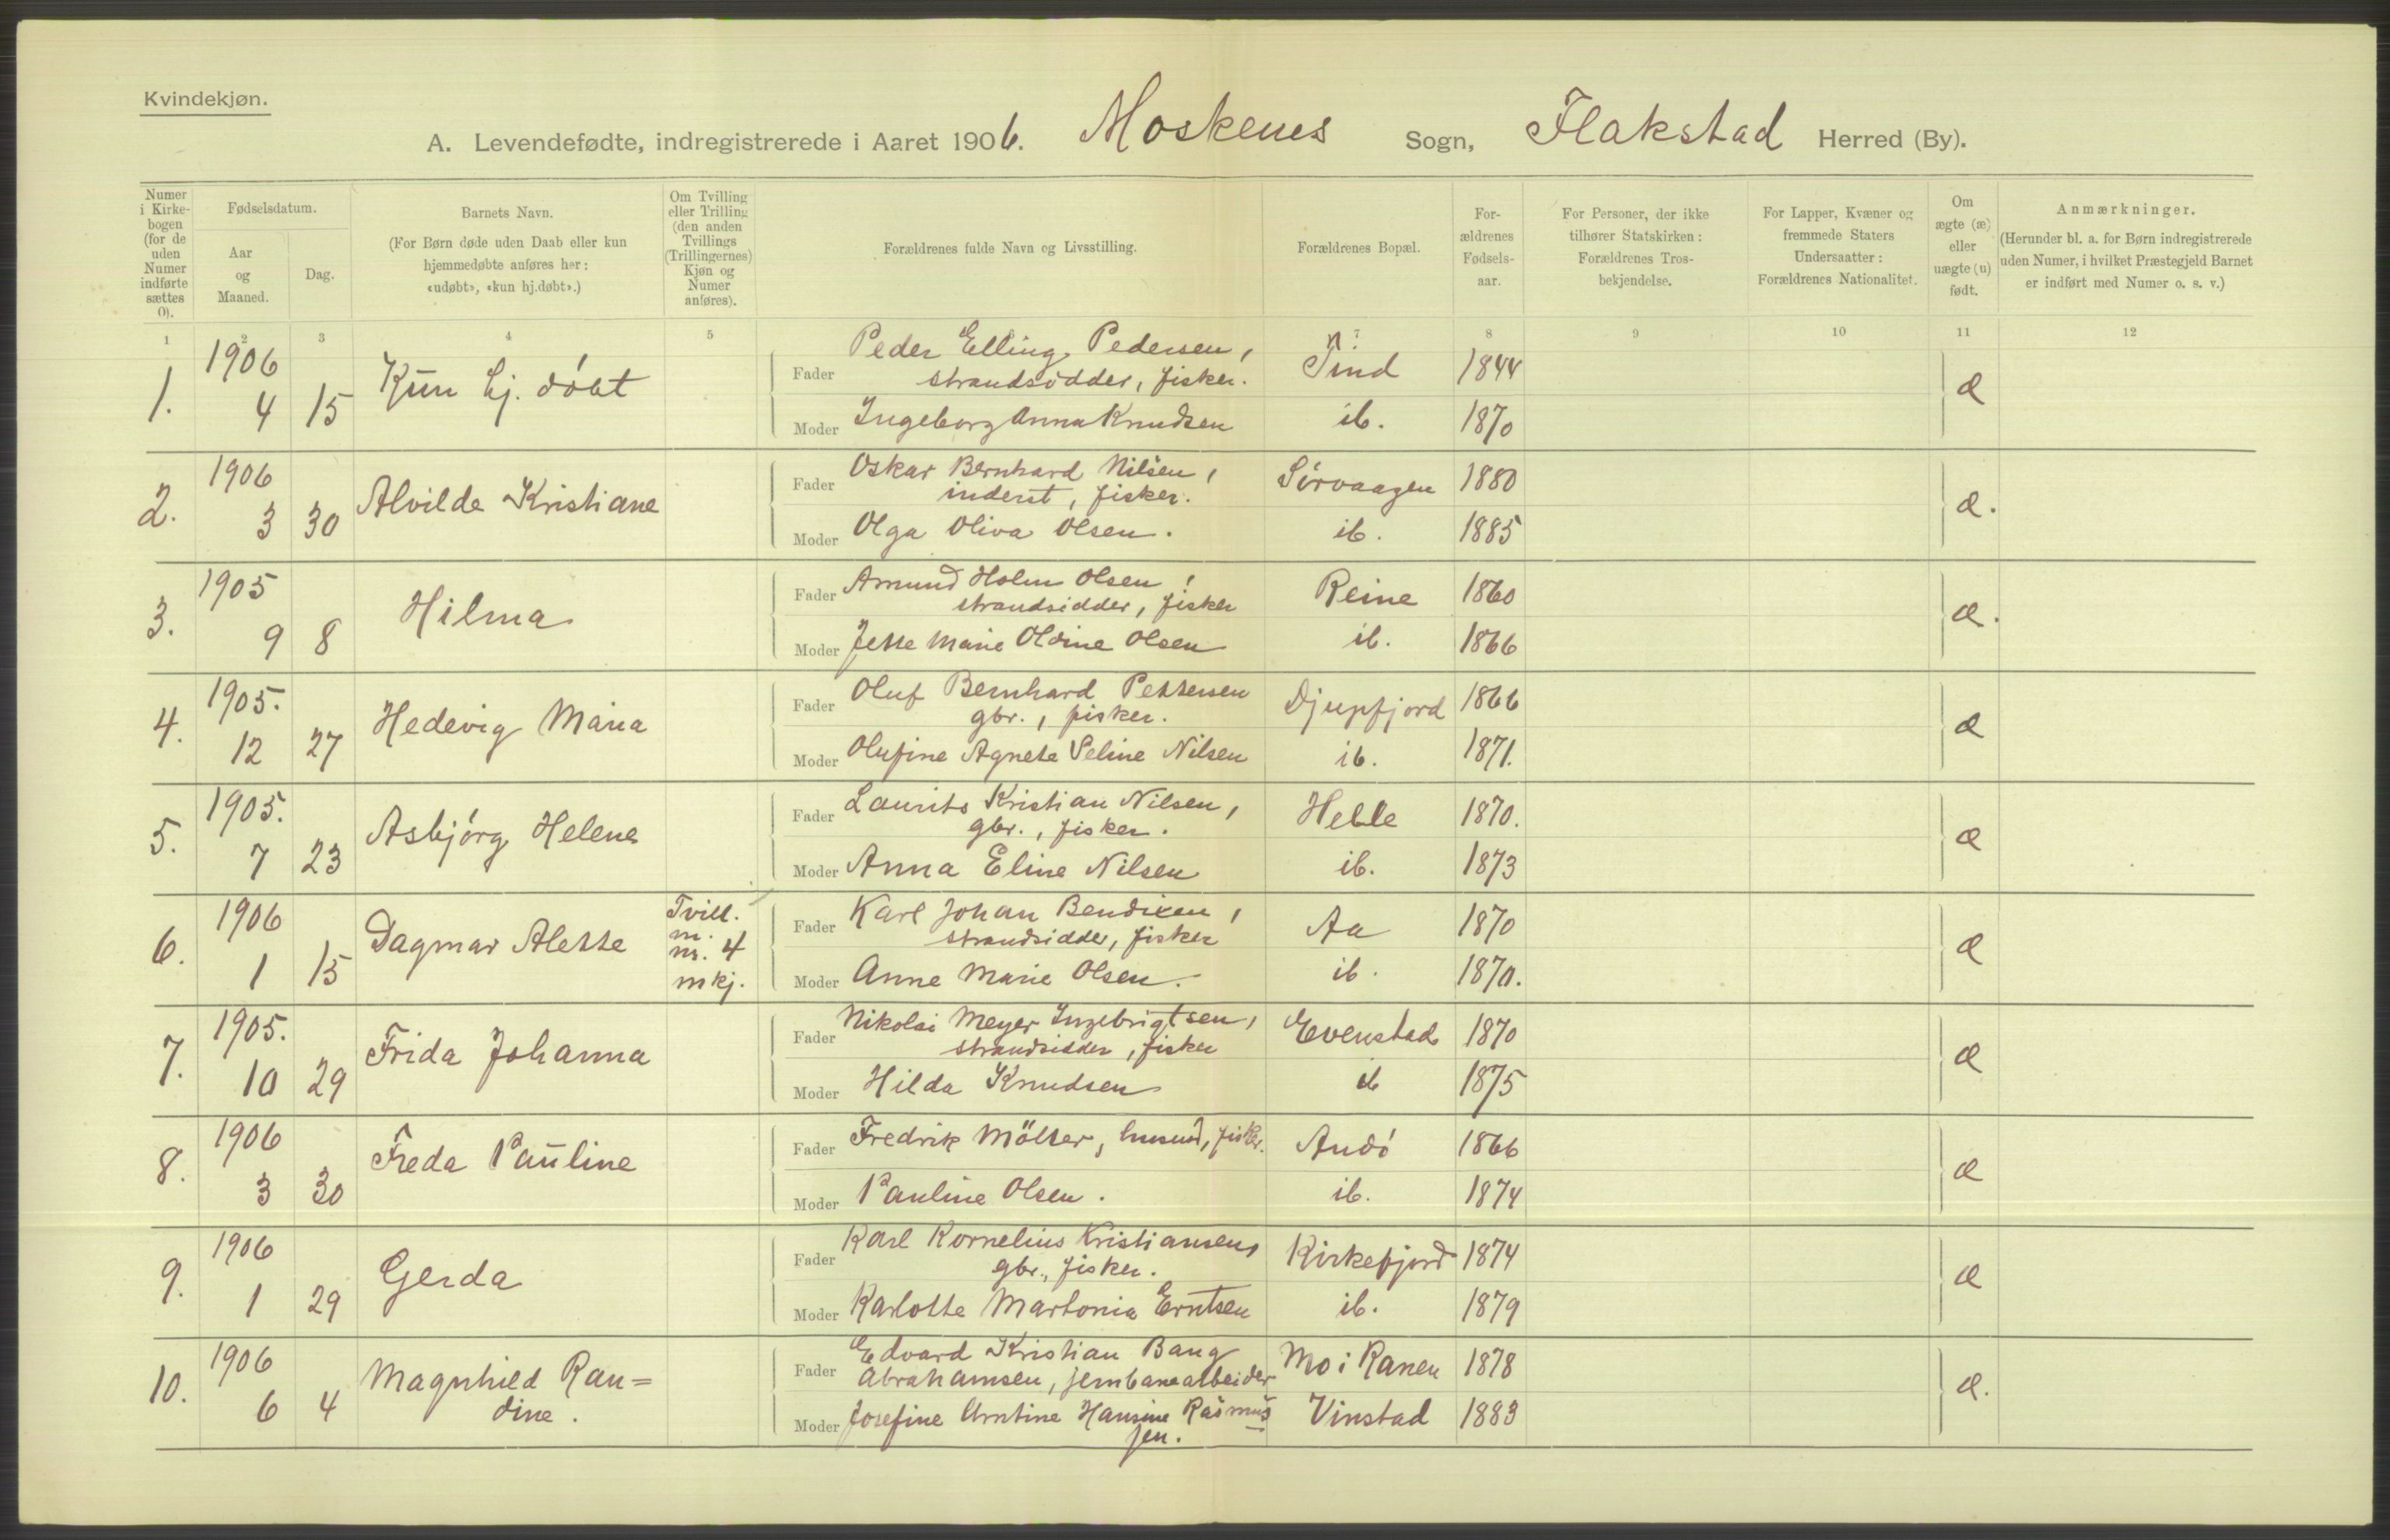 Kvindekjøn.
A. Levendefødte, indregistrerede i Aaret 1906. Moskenes Sogn, Flakstad Herred (By).
Numer i Kirkebogen (for de uden Numer indførte sættes 0).
Fødselsdatum.
Aar og Maaned.
Dag.
Barnets Navn.
(For Børn døde uden Daab eller kun hjemmedøbte anføres her: «udøbt», «kun hj.døbt».)
Om Tvilling eller Trilling (den anden Tvillings (Trillingernes) Kjøn og Numer anføres).
Forældrenes fulde Navn og Livsstilling.
Forældrenes Bopæl.
Forældrenes Fødselsaar.
For Personer, der ikke tilhører Statskirken: Forældrenes Trosbekjendelse.
For Lapper, Kvæner og fremmede Staters Undersaatter: Forældrenes Nationalitet.
Om ægte (æ) eller uægte (u) født.
Anmærkninger.
(Herunder bl. a. for Børn indregistrerede uden Numer, i hvilket Præstegjeld Barnet er indført med Numer o. s. v.)
1 2 3 4 5 7 8 9 10 11 12
1. 1906 4 15 Kun hj. døbt
Fader Peder Elling Pedersen, strandsidder, fisker. Tind 1844 æ
Moder Ingeborg Anna Knudsen ib. 1870
2. 1906 3 30 Alvilde Kristiane
Fader Oskar Bernhard Nilsen, inderst, fisker. Sørvaagen 1880 æ.
Moder Olga Oliva Olsen. ib. 1885
3. 1905 9 8 Hilma
Fader Amund Holm Olsen, strandsidder, fisker Reine 1860 æ.
Moder Jette Marie Oldine Olsen ib. 1866
4. 1905. 12 27 Hedevig Maria
Fader Oluf Bernhard Pettersen gbr., fisker. Djupfjord 1866 æ
Moder Olufine Agnete Seline Nilsen ib. 1871.
5. 1905. 7 23 Asbjørg Helene
Fader Laurits Kristian Nilsen, gbr., fisker. Helle 1870. æ
Moder Anna Eline Nilsen ib. 1873
6. 1906 1 15 Dagmar Alette Tvill. m. nr. 4 mkj.
Fader Karl Johan Bendixen, strandsidder, fisker Aa 1870 æ
Moder Anne Marie Olsen. ib. 1870.
7. 1905. 10 29 Frida Johanna
Fader Nikolai Meyer Ingebrigtsen, strandsidder, fisker Evenstad 1870 æ
Moder Hilda Knudsen ib 1875
8. 1906 3 30 Freda Pauline
Fader Fredrik Möller, husmd, fisker. Andø 1866 æ
Moder Pauline Olsen. ib. 1874
9. 1906 1 29 Gerda
Fader Karl Kornelius Kristiansen, gbr., fisker. Kirkefjord 1874 æ
Moder Karlotte Martonia Erntsen ib. 1879
10. 1906 6 4 Magnhild Ran=
dine.
Fader Edvard Kristian Bang
Abrahamsen, jernbanearbeider Mo i Ranen 1878 æ.
Moder Josefine Arntine Hansine Rasmus
sen. Vinstad 1883